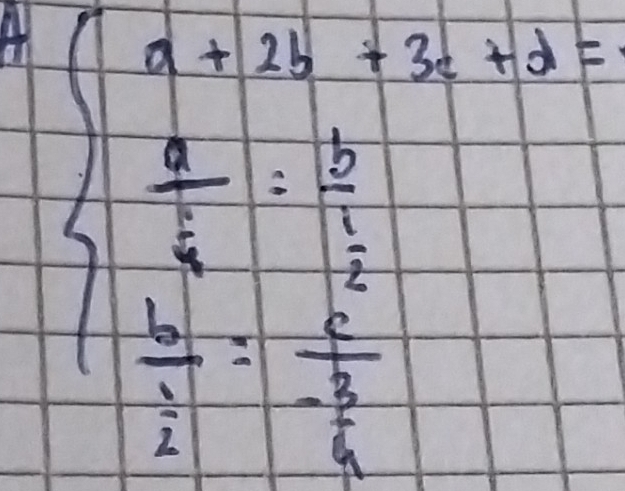 A { a + 2b + 3c + d =
a/(1/4) = b/(1/2)
b/(1/2) = c/(-3/4)